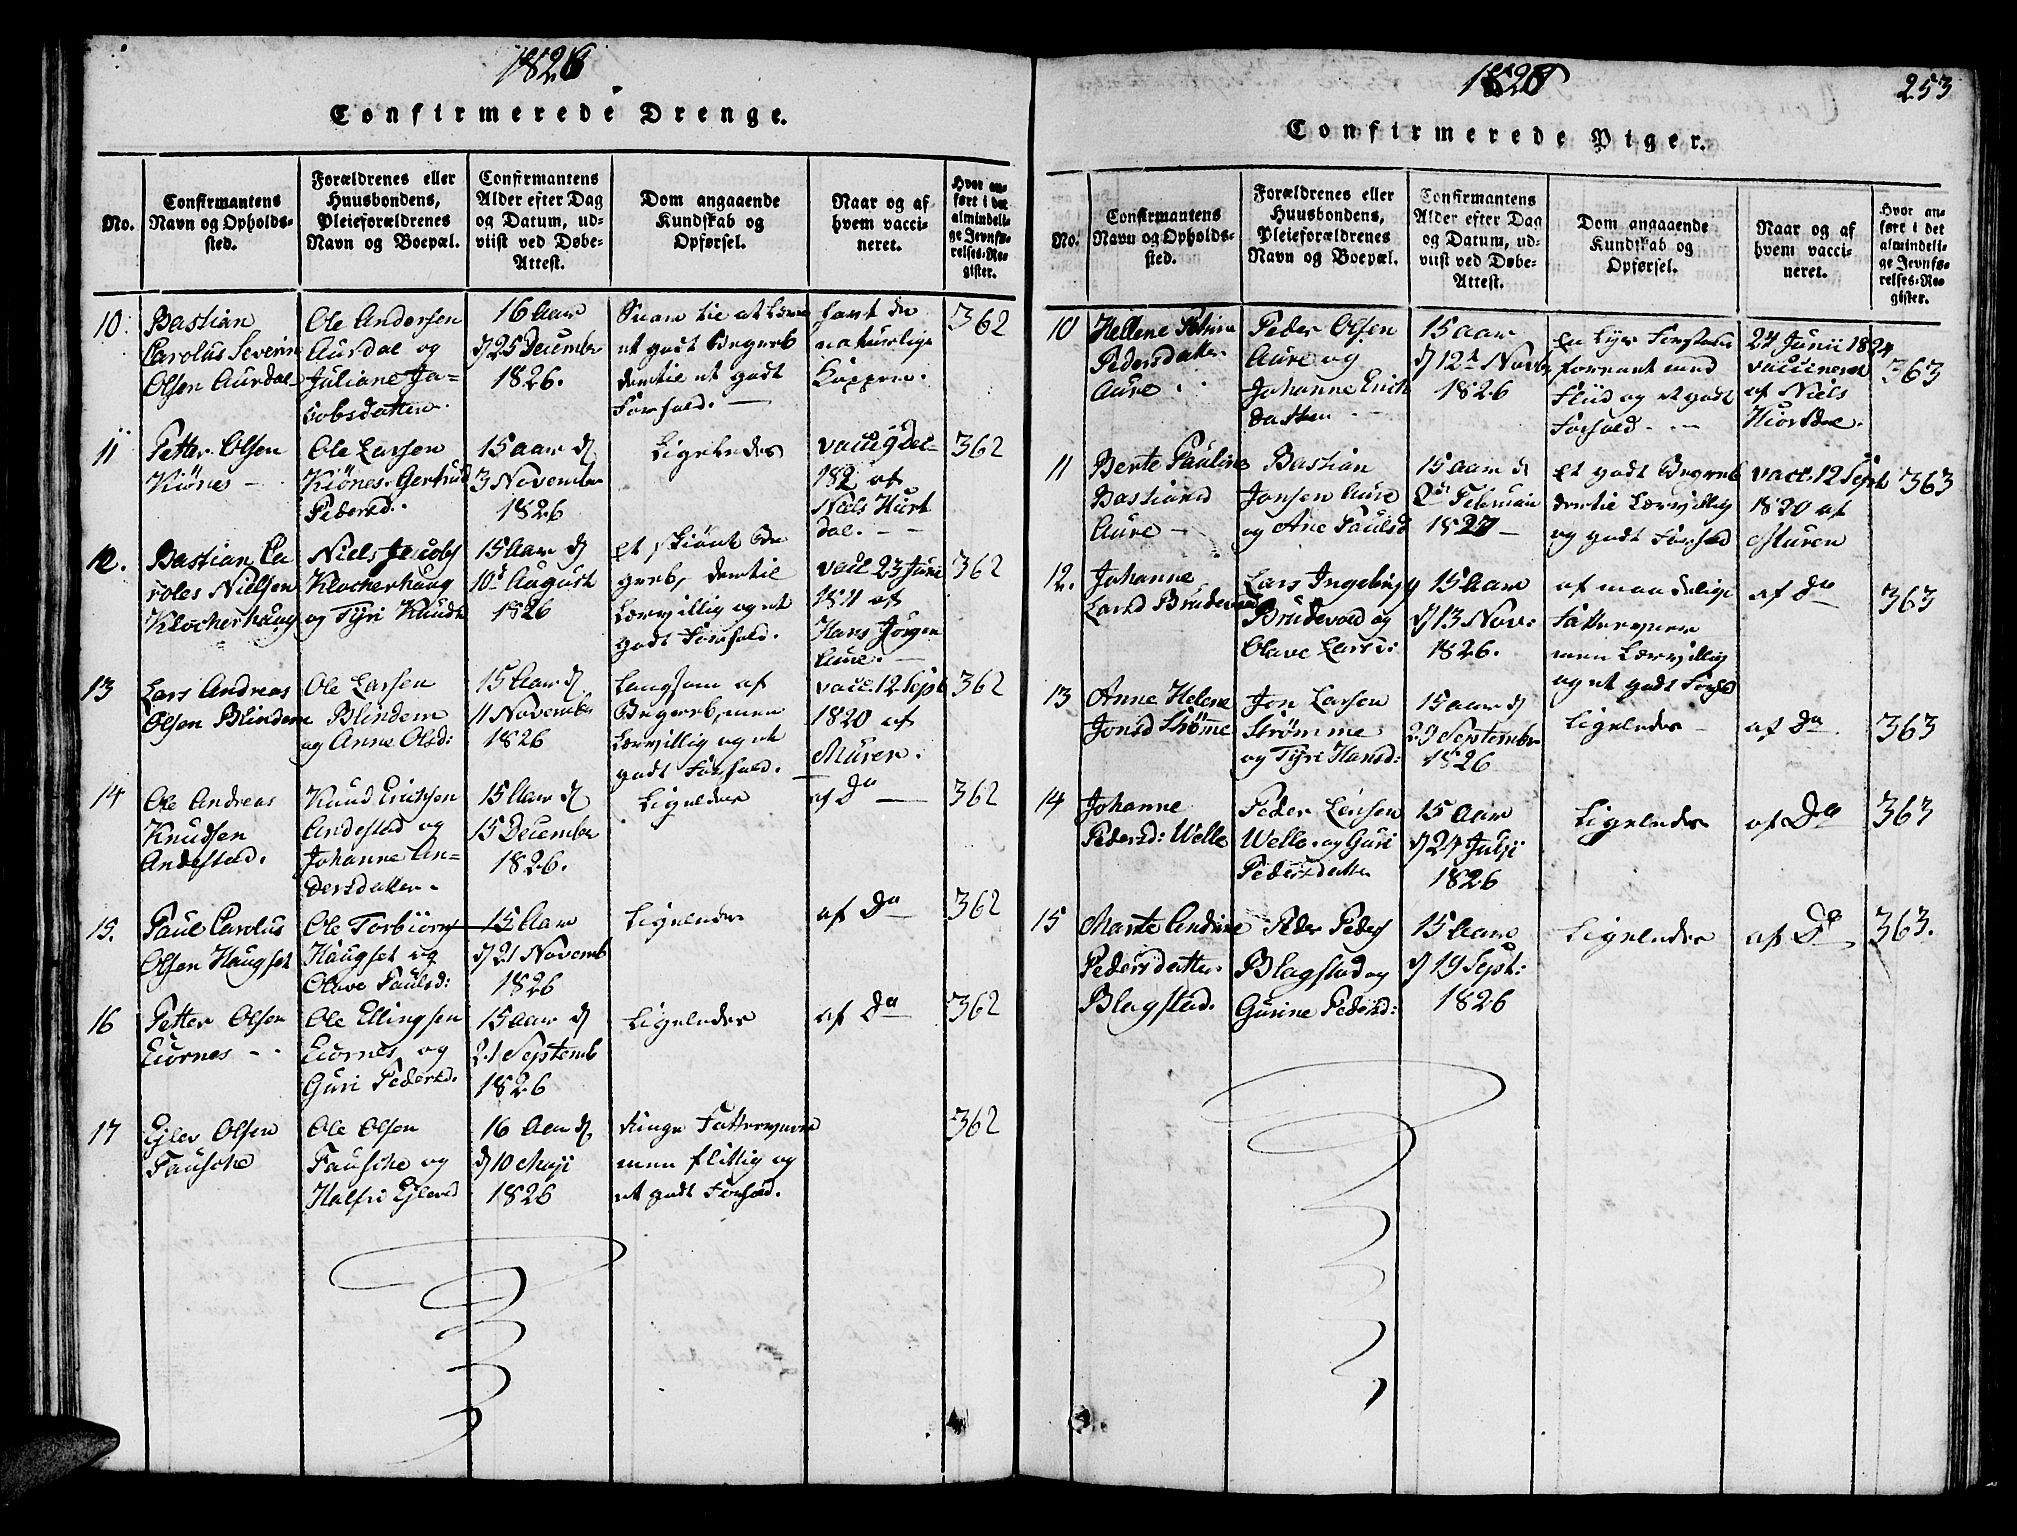 1826
Confirmerede Drenge.
No.
Confirmantens
Navn og Opholds-
sted.
Forældrenes eller
Huusbondens,
Pleieforældrenes
Navn og Boepæl.
Confirmantens
Alder efter Dag
og Datum, ud-
viist ved Døbe-
Attest.
Dom angaaende
Kundskab og
Opførsel.
Naar og af
hvem vacci-
neret.
Hvor an-
ført i det
almindeli-
ge Jevnfø-
relses-Re-
gister.
10
Bastian
Carolus Severin
Olsen Aurdal
Ole Andersen
Aurdal og
Juliane Ja-
cobsdatter
16 Aar
d 25 December
1826.
et godt Begreb
dertil et godt
Forhold.
havt de
naturlige
Kopper.
362
11
Petter Olsen
Kiønes
Ole Larsen
Kiønes Gertrud
Pedersd.
15 aar d
3 November
1826
Ligeledes
vacc 9 Dec
182 af
Niels Hurt
dal.
362
12.
Bastian Ca
roles Nielsen
Klocherhaug
Niels Jacobs
Klocherhaug
og Tyri Knuds
15 Aar d
10 August
1826
et skiønt Be
greb, dertil
Lærvillig og et
godt Forhold.
vacc 23 Juni
1811 af
Hans Jørgen
Aure.
362
13
Lars Andreas
Olsen Blindem
Ole Larsen
Blindem
og Anne Olsd:
15 Aar d
11 November
1826
Langsom af
Begreb, men
Lærvillig og et
godt Forhold.
vacc. 12 Sept
1820 af
Muren.
362
14
Ole Andreas
Knudsen
Andestad.
Knud Erichsen
Andestad og
Johanne An-
dersdatter
15 Aar d
15 December
1826.
Ligeledes
af Do
362
15.
Paul Carolus
Olsen Haugset
Ole Torbiørns
Haugset og
Olave Paulsd:
15 Aar
d 21 Novemb
1826
Ligeledes
af Do
362
16
Petter Olsen
Eiornes
Ole Ellingsen
Eiornes og
Guri Pedersd.
15 aar d
21 Septemb
1826
Ligeledes
af Do
362
17
Ejler Olsen
Fausche
Ole Olsen
Fausche og
Halfri Ejlersd
16 Aar d
d 10 Maji
1826
Ringe Fatteevne
men flittig og
et godt Forhold.
362
253
Confirmerede Piger.
No.
Confirmantens
Navn og Opholds-
sted.
Forældrenes eller
Huusbondens,
Pleieforældrenes
Navn og Boepæl.
Confirmantens
Alder efter Dag
og Datum, ud-
viist ved Døbe-
Attest.
Dom angaaende
Kundskab og
Opførsel.
Naar og af
hvem vacci-
neret.
Hvor an-
ført i det
almindeli-
ge Jevnfø-
relses-Re-
gister.
10
Hellene Petrine
Pedersdatter
Aure
Peder Olsen
Aure og
Johanne Erich
datter
15 aar
d 12 Novbr
1826
forenet med
Fliid og et godt
Forhold
24 Junii 1824
vaccineret
af Niels
Hiortdal.
363
11
Berte Pauline
Bastiansd
Aure
Bastian
Jonsen Aure
og Ane Paulsd
15 aar d
2 Februari
1827
et godt Begreb
dertil Lærvillig
og godt Forhold
vacc. 12 Sept
1820 af
Muren
363
12.
Johanne
Larsd Brudevold
Lars Ingebrigt
Brudevold og
Olave Larsd:
15 Aar
d 13 Nov:
1826.
af maadelige
Fatteevner
men Lærvillig
og et godt Forhold
af Do
363
13
Anne Helene
Jonsd Strømme
Jon Larsen
Strømme
og Tyri Hansd:
15 aar d
29 September
1826
Ligeledes
af Do.
363
14
Johanne
Pedersd: Welle
Peder Larsen
Welle og Guri
Pedersdatter
15 Aar
d 24 Julji
1826
Ligeledes
af Do
363
15
Marte Andrine
Pedersdatter
Blagstad.
Peder Peders
Blagstad og
Gurine Pedersd:
15 Aar
d 19 Sept:
1826
Ligeledes
af Do
363.